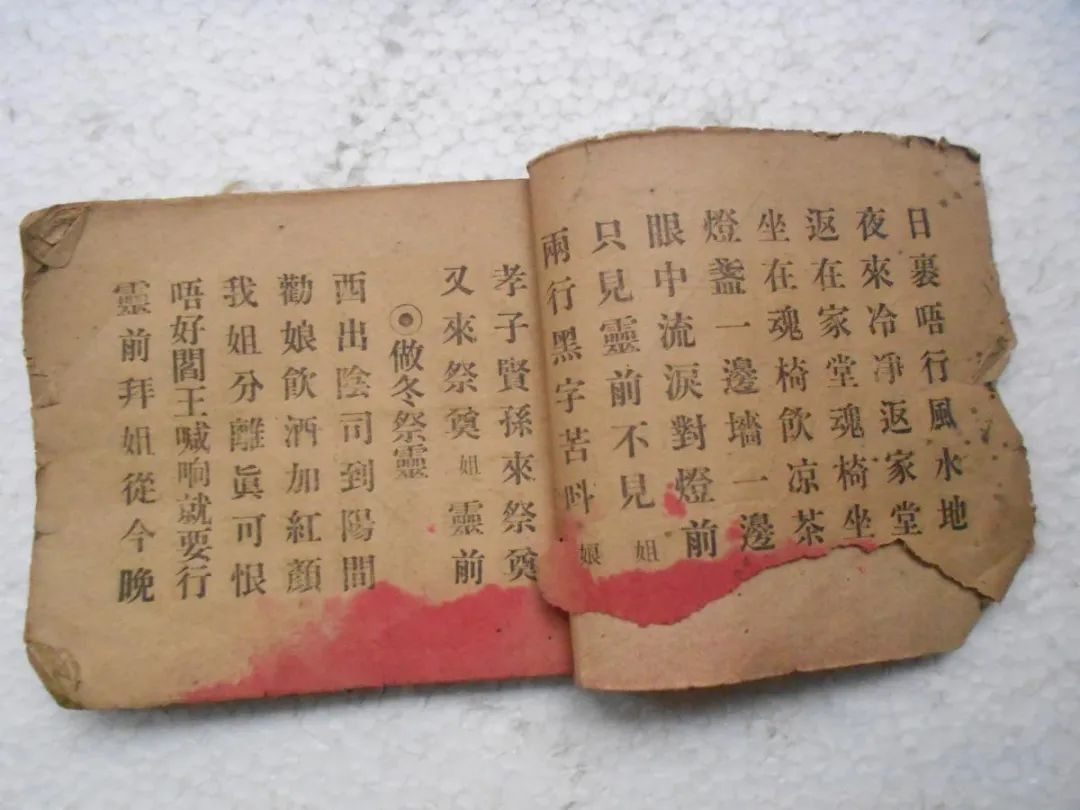 日裏唔行風水地
夜來冷凈返家堂
返在家堂魂椅坐
坐在魂椅飲凉茶
燈盞一邊墻一邊
眼中流淚對燈前
只見靈前不見姐
兩行黑字苦呌娘
孝子賢孫來祭奠
又來祭奠姐靈前
◉做冬祭靈
西出陰司到陽間
勸娘飮酒加紅顏
我姐分離眞可恨
唔好閻王喊响就要行
靈前拜姐從今晚